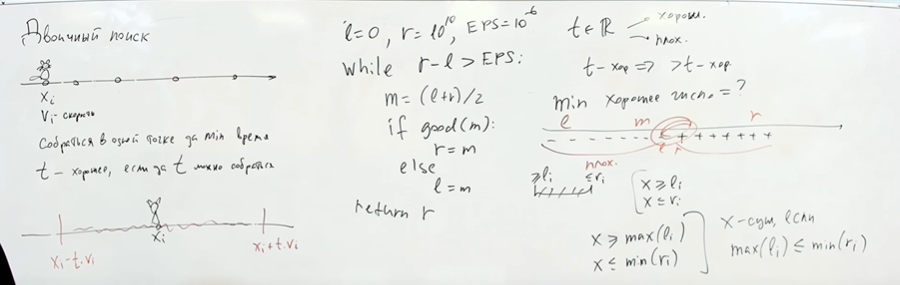 Двоичный поиск
xᵢ
vᵢ - скорость
Собраться в одной точке за min время
t - хорошее, если за t можно собраться
xᵢ
xᵢ-t·vᵢ
xᵢ+t·vᵢ
l=0, r=10¹⁰, EPS=10⁻⁶
while r-l > EPS:
m=(l+r)/2
if good(m):
r=m
else
l=m
return r
t ∈ ℝ
хорош.
плох.
t-хор => >t-хор.
min хорошее число = ?
l m r
- - - - - - - + + + + + + +
l r
плох.
≥lᵢ ≤rᵢ
x ≥ lᵢ
x ≤ rᵢ
x ≥ max(lᵢ)
x ≤ min(rᵢ)
x-сущ, если
max(lᵢ) ≤ min(rᵢ)